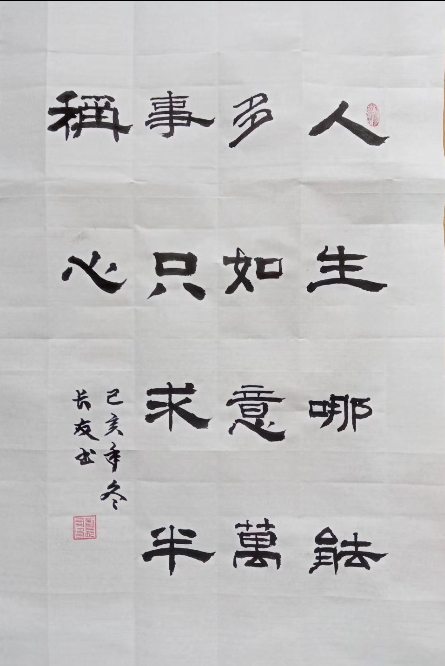 人生哪能
多如意萬
事只求半
稱心
己亥年冬
长友书